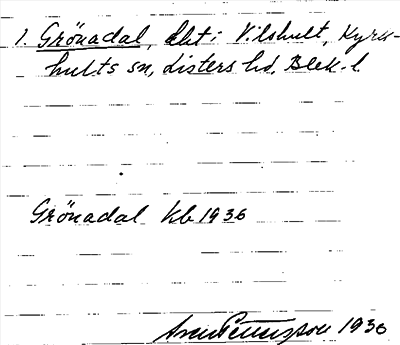 1. Grönadal, lht i Vilshult, Kyrk-
hults sn, Listers hd, Blek. l.
Grönadal Kb 1936
1936